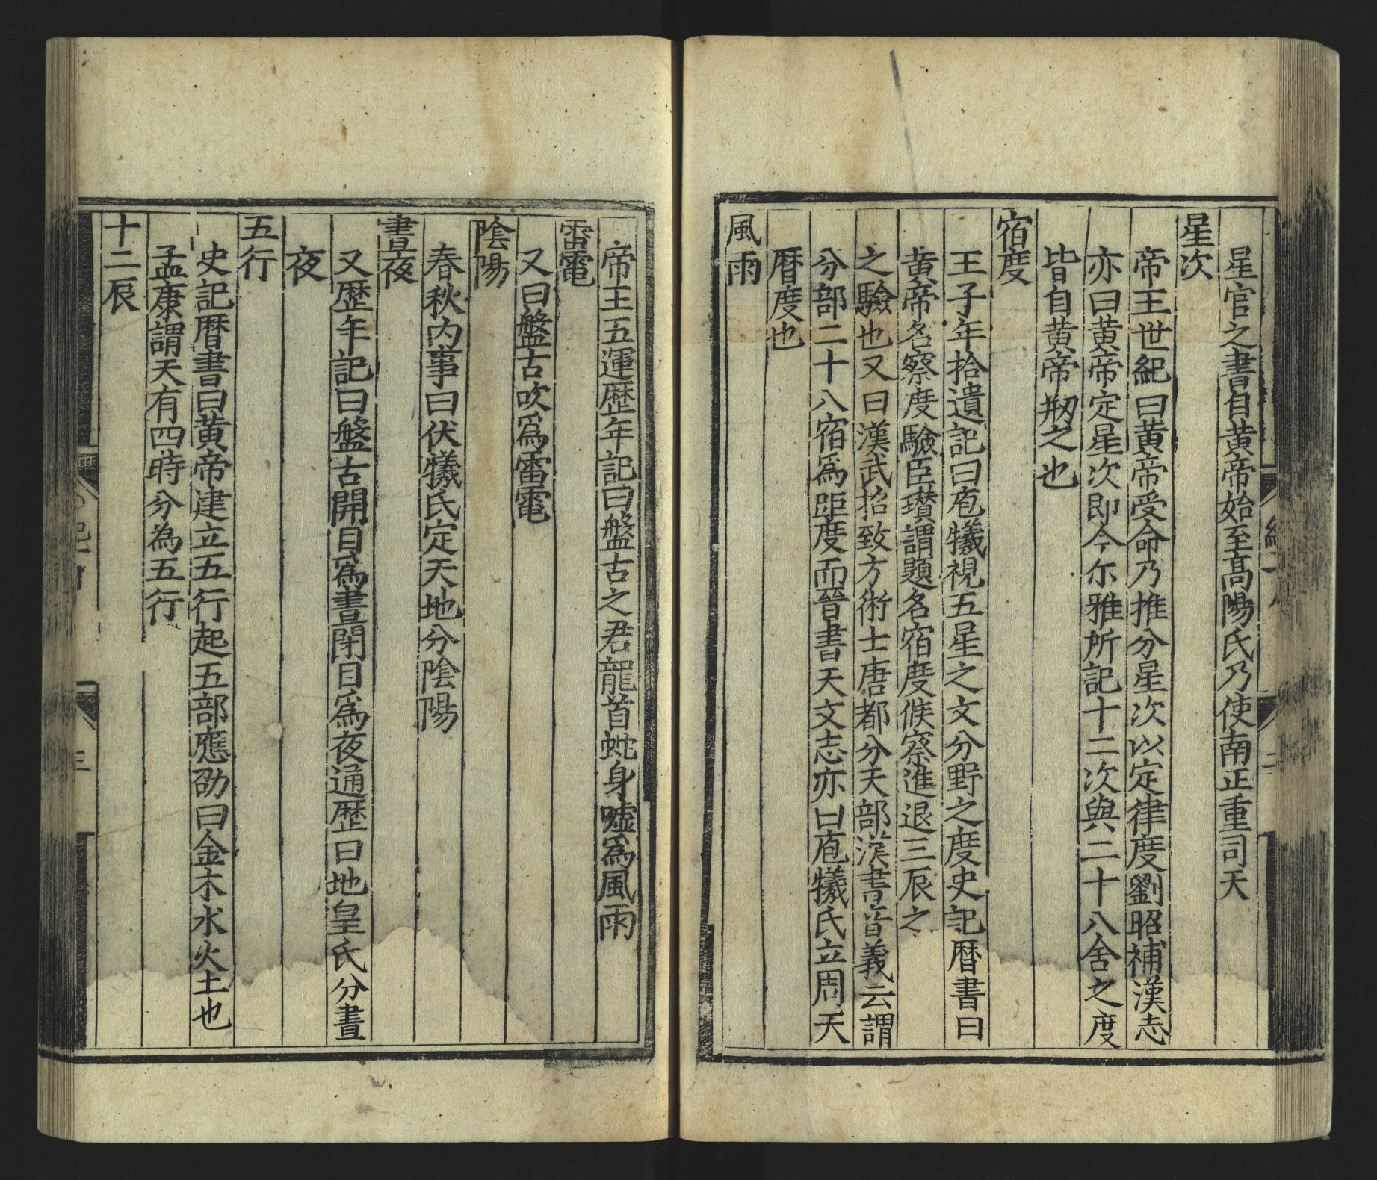 星官之書自黃帝始至高陽氏乃使南正重司天
星次
帝王世紀曰黃帝受命乃推分星次以定律度劉昭補漢志
亦曰黃帝定星次即今尔雅所記十二次與二十八舍之度
皆自黃帝刱之也
宿度
王子年拾遺記曰庖犧視五星之文分野之度史記曆書曰
黃帝名察度驗臣瓚謂題名宿度候察進退三辰之
之驗也又曰漢武招致方術士唐都分天部漢書音義云謂
分部二十八宿爲距度而晉書天文志亦曰庖犧氏立周天
曆度也
風雨
帝王五運歷年記曰盤古之君龍首蛇身噓爲風雨
雷電
又曰盤古吹爲雷電
陰陽
春秋內事曰伏犧氏定天地分陰陽
晝夜
又歷年記曰盤古開目爲晝閉目爲夜通歷曰地皇氏分晝
夜
五行
史記曆書曰黃帝建立五行起五部應劭曰金木水火土也
孟康謂天有四時分為五行
十二辰
三